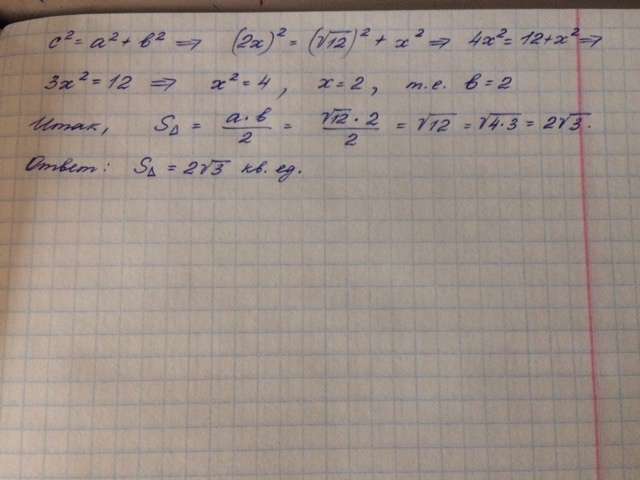 c² = a² + b² ⇒ (2x)² = (√12)² + x² ⇒ 4x² = 12 + x² ⇒
3x² = 12 ⇒ x² = 4, x = 2, т.е. b = 2
Итак, S△ = a·b/2 = √12·2/2 = √12 = √4·3 = 2√3.
Ответ: S△ = 2√3 кв. ед.